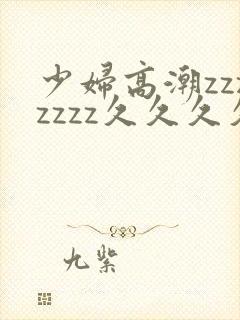 少婦高潮zzz
zzzz久久久久
九紫